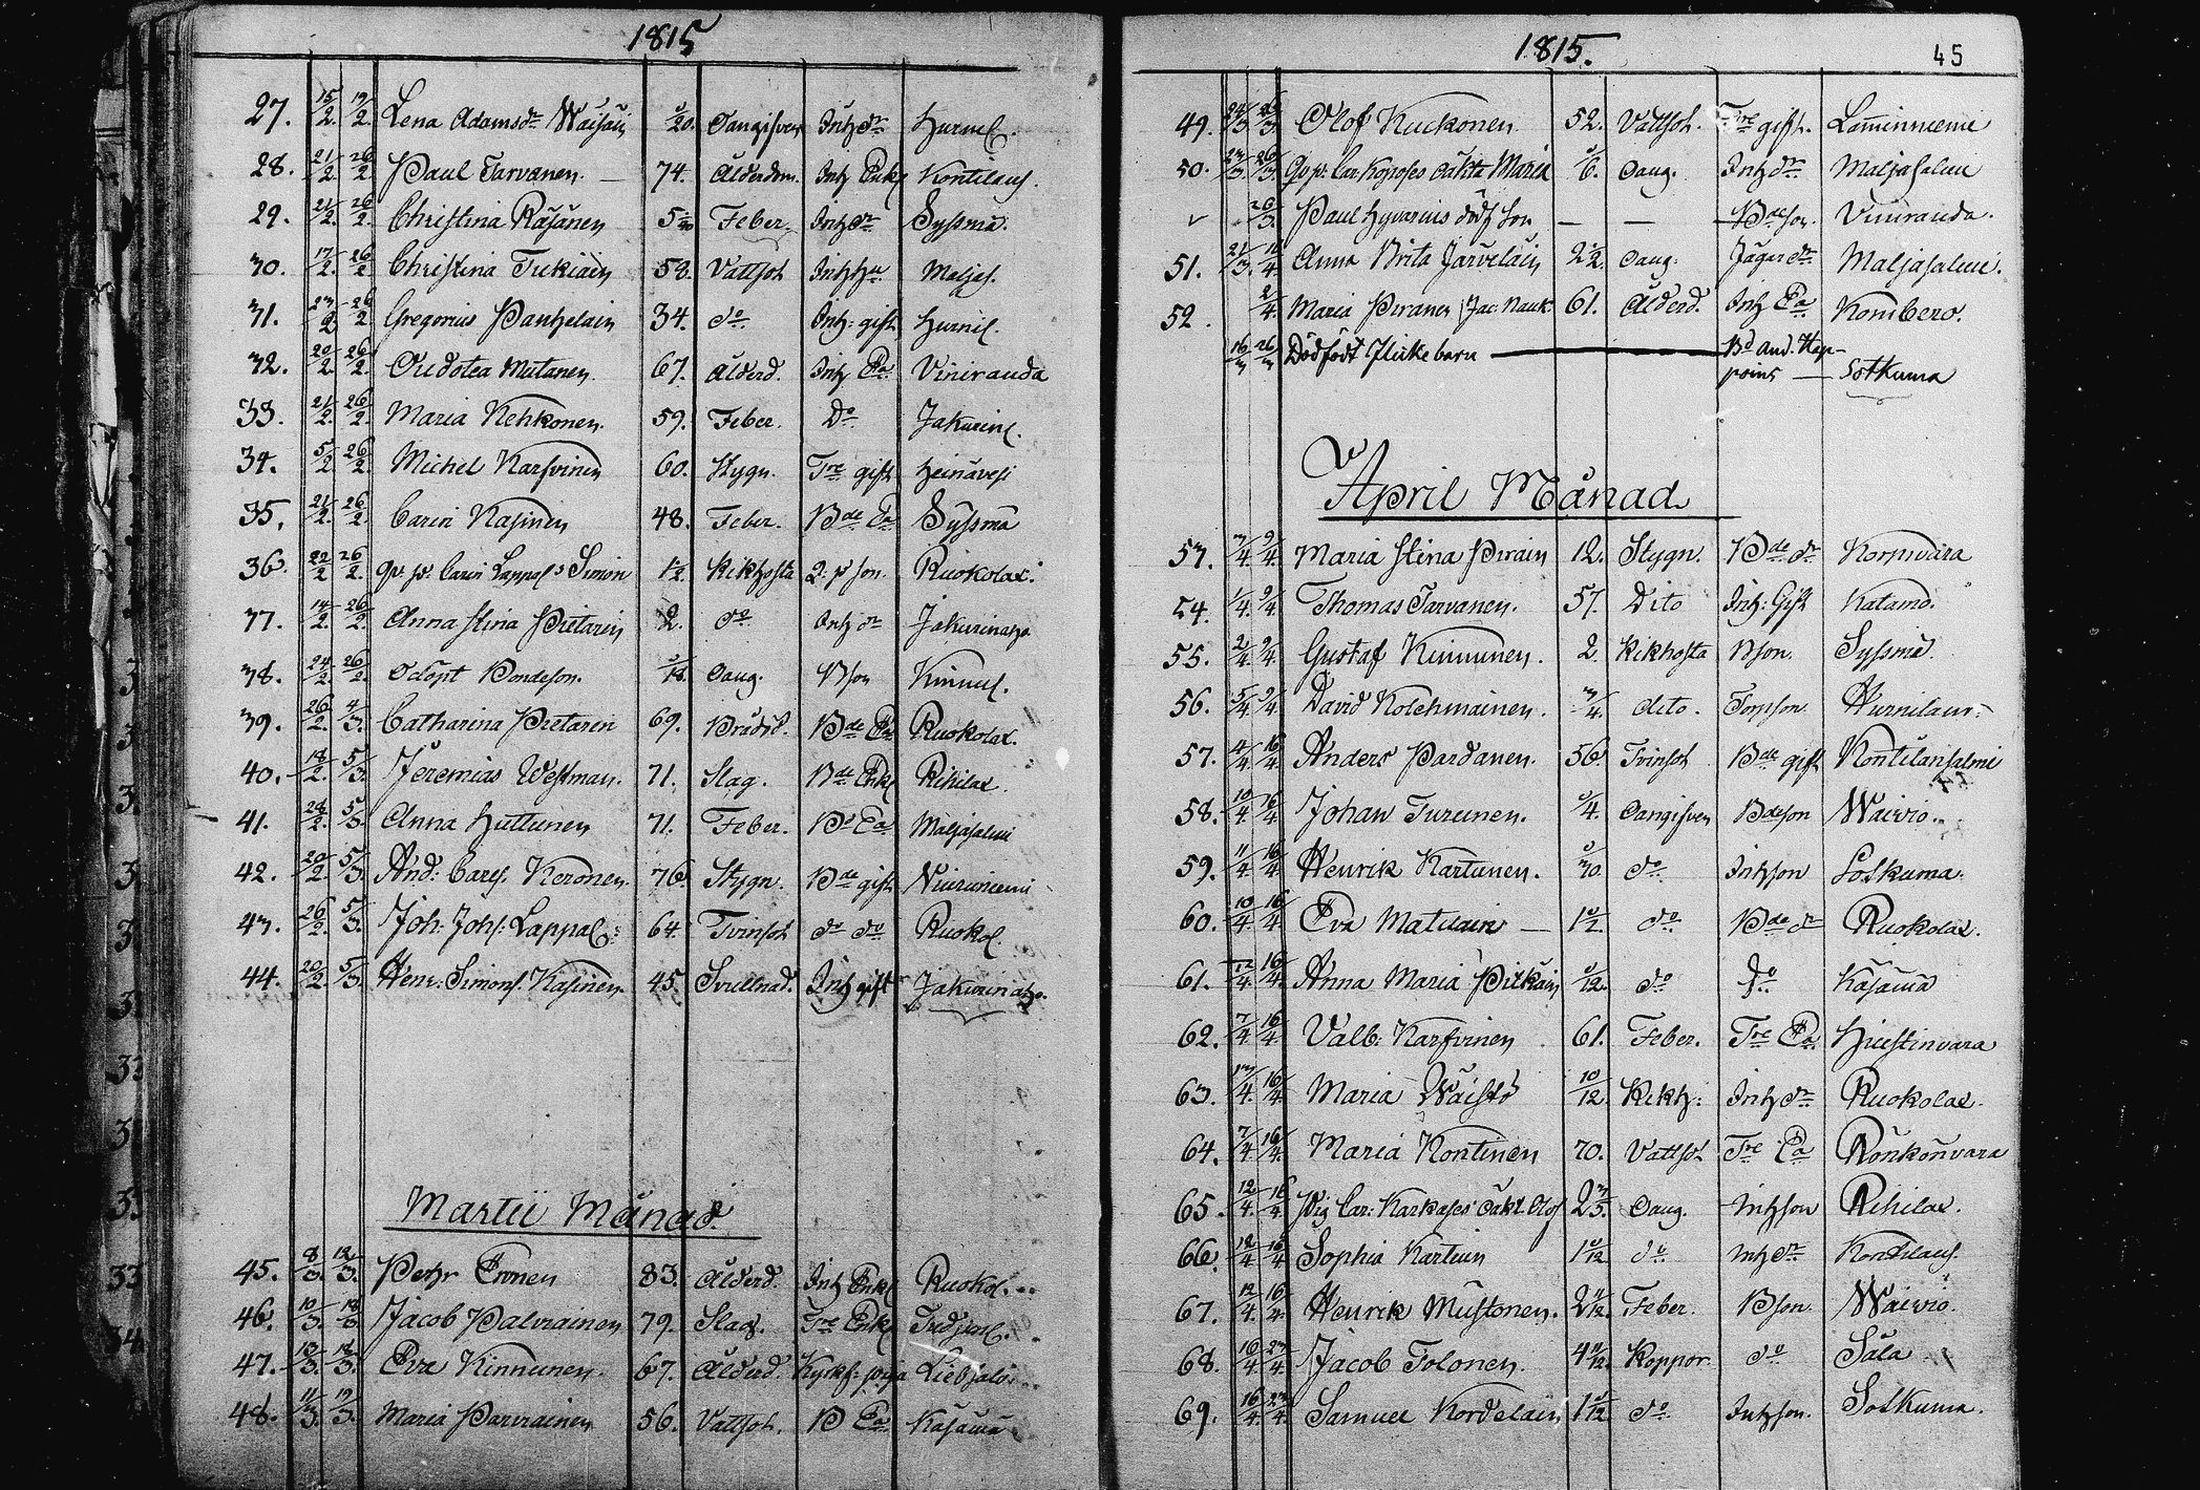 1815
27. 15/2. 19/2. Lena Adamsdr Waisäin /20. Oangifven Inhdr Hurusl.
28. 21/2. 26/2. Paul Tarvanen. — 74. Ålderdom. Inh Enkl Kontilaus.
29. 21/2. 26/2. Christina Räsänen 5 Feber. Inhdr Syssmä.
30. 17/2. 26/2. Christina Tukiain 58. Vattsot Inhhu Maljas.
31. 23/2 26/2 Gregorius Pantzelain 34. do Inh: gift Hurnil.
32. 20/2 26/2. Oudotea Mutanen. 67. Ålderd. Inh Ea Viniranda
33. 21/2. 26/2. Maria Nehkonen. 59. Feber. Do Jakurinl.
34. 5/2 26/2. Michel Karfvinen 60. Stygn. Tre gift Heinävesi
35. 21/2. 26/2. Carin Kasinen 48. Feber. Bde Ea Syssmä
36. 22/2 26/2. qv. p. Carin Lappal s Simon 1/2. Kikhosta Q: p son. Ruokolax.
37. 14/2. 26/2. Anna Stina Pietarin 2. do Inhdr Jakurinatzo
38. 24/2. 26/2. Odöpt Bondeson. Oaug. Bson Kinnul.
39. 26/2. 4/3. Catharina Pietaren 69. Brådd. Bde Ea Ruokolax.
40. 18/2. 5/3. Jeremias Westman. 71. Slag. Bde Enkl Rihilax.
41. 28/2. 5/3. Anna Huttunen 71. Feber. Bd Ea Maljasalmi
42. 20/2. 5/3. And: Carls. Keronen. 76. Stygn. Bde gift Niiriniemi
43. 26/2. 5/3. Joh: Johs: Lappal: 64. Tvinsot do do Ruokol.
44. 20/2. 5/3. Henr: Simons. Kasinen. 45. Svullnad. Inh gift Jakurinatzo.
Martii Månad.
45. 8/3. 12/3. Petyr Eronen 83. Ålderd. Inh Enkl Ruokol.
46. 10/3. 18/3 Jacob Palviainen 79. Slag. Tre Enkl Tredjenl.
47. 13/3. 18/3. Eva Kinnunen. 67. Ålderd. Kyrkf: piga Liebjalax
48. 11/3. 19/3. Maria Parviainen 56. Vattsot. B Ea. Käsämä
1815. 45
49. 24/3. 26/3. Olof Kuckonen. 52. Vattsot. Tre gift. Laminniemi
50. 23/3. 26/3. Qvp: Car. Kopposes oäkta Maria 6. Oaug. Inhdr Maljasalmi
v 26/3. Paul Hyvärins dödf son — — Bdeson. Viniranda.
51. 21/3. 10/4. Anna Brita Järveläin 2 1/2. Oaug. Jägerdr Maljasalmi.
52. 2/4. Maria Piranen /Jac: Nauk. 61. Ålderd. Inh Ea Kombero.
16/3 26/3 Dödfödt flickebarn — Bd And. Hap-
poins — Sotkuma
April Månad
53. 7/4. 9/4. Maria Stina Pirain 12. Stygn. Bde dr Kornivära
54. 1/4. 9/4. Thomas Tarvanen. 57. Dito Inh: Gift Katamo.
55. 2/4. 9/4. Gustaf Kinnunen. 2. Kikhosta Bson. Syssmä
56. 5/4. 9/4. David Kolehmainen. 3/4. dito. Torpson Hurnilam:
57. 4/4. 16/4. Anders Pardanen. 56. Tvinsot Bde gift Kontilansalmi
58. 10/4. 16/4. Johan Turunen. /4. Oangifven Bdeson Waivio.
59. 11/4. 16/4. Henrik Kartunen. do Inhson Sotkuma.
60. 10/4. 16/4. Eva Matilain — 1 do Bde dr Ruokolax.
61. 12/4. 16/4. Anna Maria Pitkäin /12. do do Käsämä
62. 7/4. 16/4. Valb: Karfvinen 61. Feber. Tre Ea. Hiiestinvara
63. 13/4. 16/4. Maria Wäistö 10/12. Kikh: Inhdr Ruokolax.
64. 7/4. 16/4. Maria Kontinen 70. Vattsot Tre Ea Rönkönvara
65. 12/4. 16/4. Pig Car: Karkases oäkt. Olof 2 Oaug. Inhson Rihilax.
66. 12/4 16/4. Sophia Kartuin 1 /12 do Inhdr Kontilaus.
67. 12/4. 16/4. Henrik Mustonen. 2 /12 Feber. Bson Waivio.
68. 16/4 23/4. Jacob Tolonen. 4 /12. Koppor. do Sala
69. 16/4. 23/4 Samuel Kordelain 1 /12 do Inhson. Sotkuma.